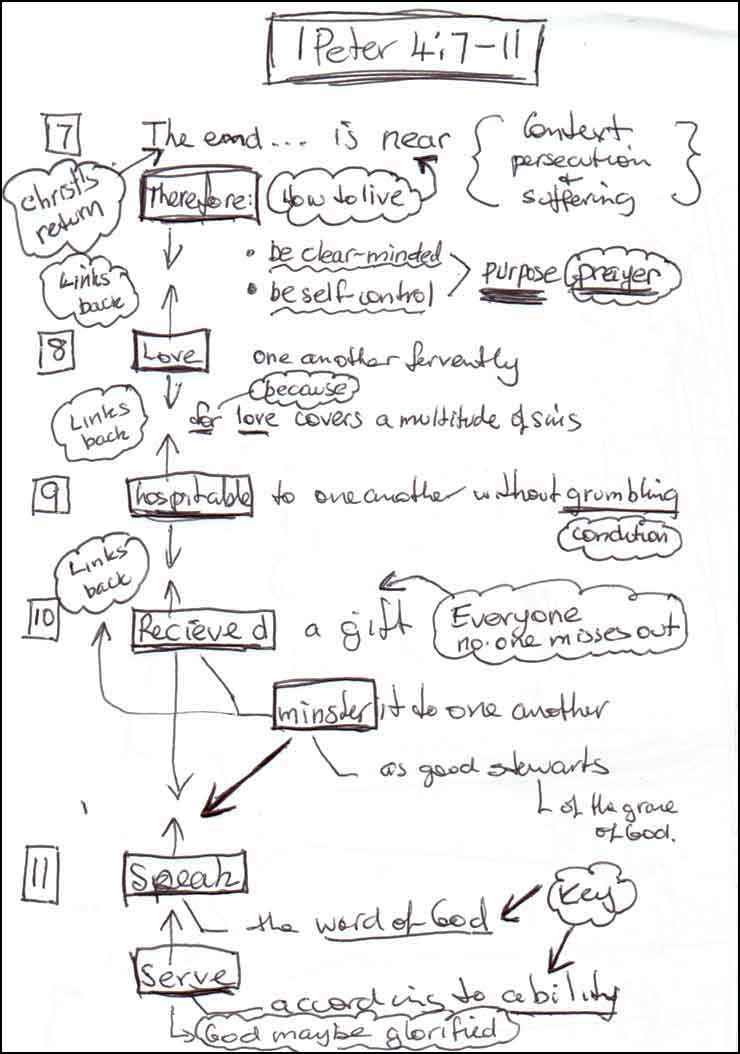 1 Peter 4:7-11
7 The end... is near
Context
persecution
+
suffering
Christ's
return
Therefore: How to live
• be clear-minded
• be self control
purpose prayer
Links
back
8 Love one another fervently
because
for love covers a multitude of sins
Links
back
9 hospitable to one another without grumbling
condition
Links
back
10 Recieved a gift
Everyone
no. one misses out
minster it to one another
as good stewarts
of the grace
of God.
11 Speak
the word of God
Key
Serve
according to ability
God maybe glorified